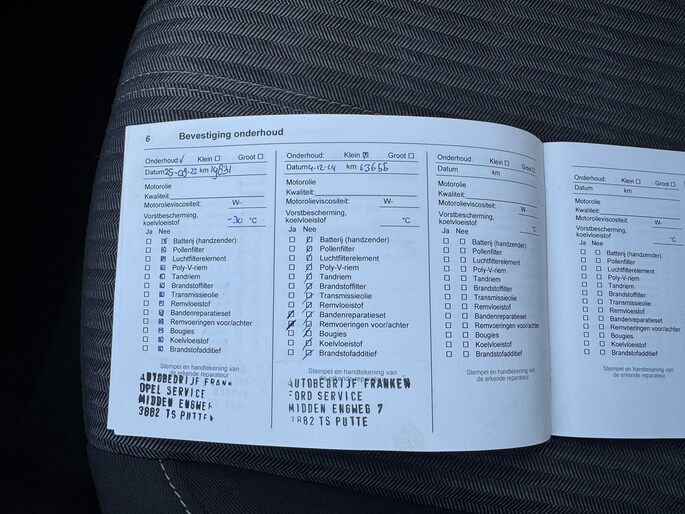 6 Bevestiging onderhoud
Onderhoud: Klein Groot
Datum 25-04-22 km 19831
Motorolie
Kwaliteit:
Motorolieviscositeit: W-
Vorstbescherming,
koelvloeistof -30 °C
Ja Nee
Batterij (handzender)
Pollenfilter
Luchtfilterelement
Poly-V-riem
Tandriem
Brandstoffilter
Transmissieolie
Remvloeistof
Bandenreparatieset
Remvoeringen voor/achter
Bougies
Koelvloeistof
Brandstofadditief
Stempel en handtekening van
de erkende reparateur
AUTOBEDRIJF FRANK
OPEL SERVICE
MIDDEN ENGWE
3882 TS PUTTEN
Onderhoud: Klein Groot
Datum 4-12-24 km 63655
Motorolie
Kwaliteit:
Motorolieviscositeit: W-
Vorstbescherming,
koelvloeistof °C
Ja Nee
Batterij (handzender)
Pollenfilter
Luchtfilterelement
Poly-V-riem
Tandriem
Brandstoffilter
Transmissieolie
Remvloeistof
Bandenreparatieset
Remvoeringen voor/achter
Bougies
Koelvloeistof
Brandstofadditief
Stempel en handtekening van
de erkende reparateur
AUTOBEDRIJF FRANKEN
FORD SERVICE
MIDDEN ENGWEG 7
3882 TS PUTTE
Onderhoud: Klein Groot
Datum km
Motorolie
Kwaliteit:
Motorolieviscositeit: W-
Vorstbescherming,
koelvloeistof °C
Ja Nee
Batterij (handzender)
Pollenfilter
Luchtfilterelement
Poly-V-riem
Tandriem
Brandstoffilter
Transmissieolie
Remvloeistof
Bandenreparatieset
Remvoeringen voor/achter
Bougies
Koelvloeistof
Brandstofadditief
Stempel en handtekening van
de erkende reparateur
Onderhoud: Klein Groot
Datum km
Motorolie
Kwaliteit:
Motorolieviscositeit: W-
Vorstbescherming,
koelvloeistof °C
Ja Nee
Batterij (handzender)
Pollenfilter
Luchtfilterelement
Poly-V-riem
Tandriem
Brandstoffilter
Transmissieolie
Remvloeistof
Bandenreparatieset
Remvoeringen voor/achter
Bougies
Koelvloeistof
Brandstofadditief
Stempel en handtekening van
de erkende reparateur